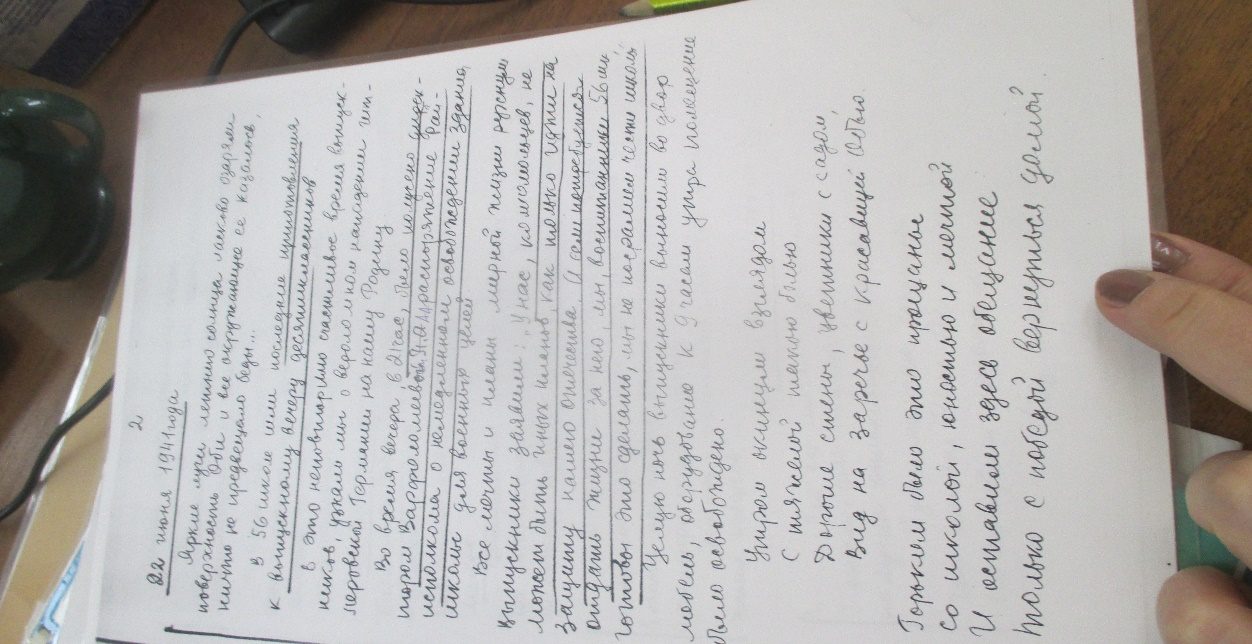 2
22 июня 1941 года
Яркие лучи летнего солнца ласково озаряли
поверхность Оби и все окружающее ее казалось,
ничто не предвещало беды...
В 56 школе шли последние приготовления
к выпускному вечеру десятиклассников
В это неповторимо счастливое время выпуск-
ников, узнали мы о вероломном нападении гит-
леровской Германии на нашу Родину
Во время вечера в 21 час, было получено дирек-
тором Варфоломеевой распоряжение Рай-
исполкома о немедленном освобождении здания
школы для военных целей
Все мечты и планы мирной жизни рухнули
Выпускники заявили: "У нас, комсомольцев, не
может быть иных планов, как только идти на
защиту нашего отечества. А если потребуется
отдать жизни за него, мы, воспитанники 56 шк
готовы это сделать, мы не посрамим чести школы"
Целую ночь выпускники выносили во двор
мебель, оборудование К 9 часам утра помещение
было освобождено.
Утром окинули взглядом
С тяжелой такою болью
Дорогие стены, цветники с садом,
Вид на заречье с красавицей Обью.
Горьким было это прощание
Со школой, юностью и мечтой
И оставили здесь обещание
Только с победой вернуться домой